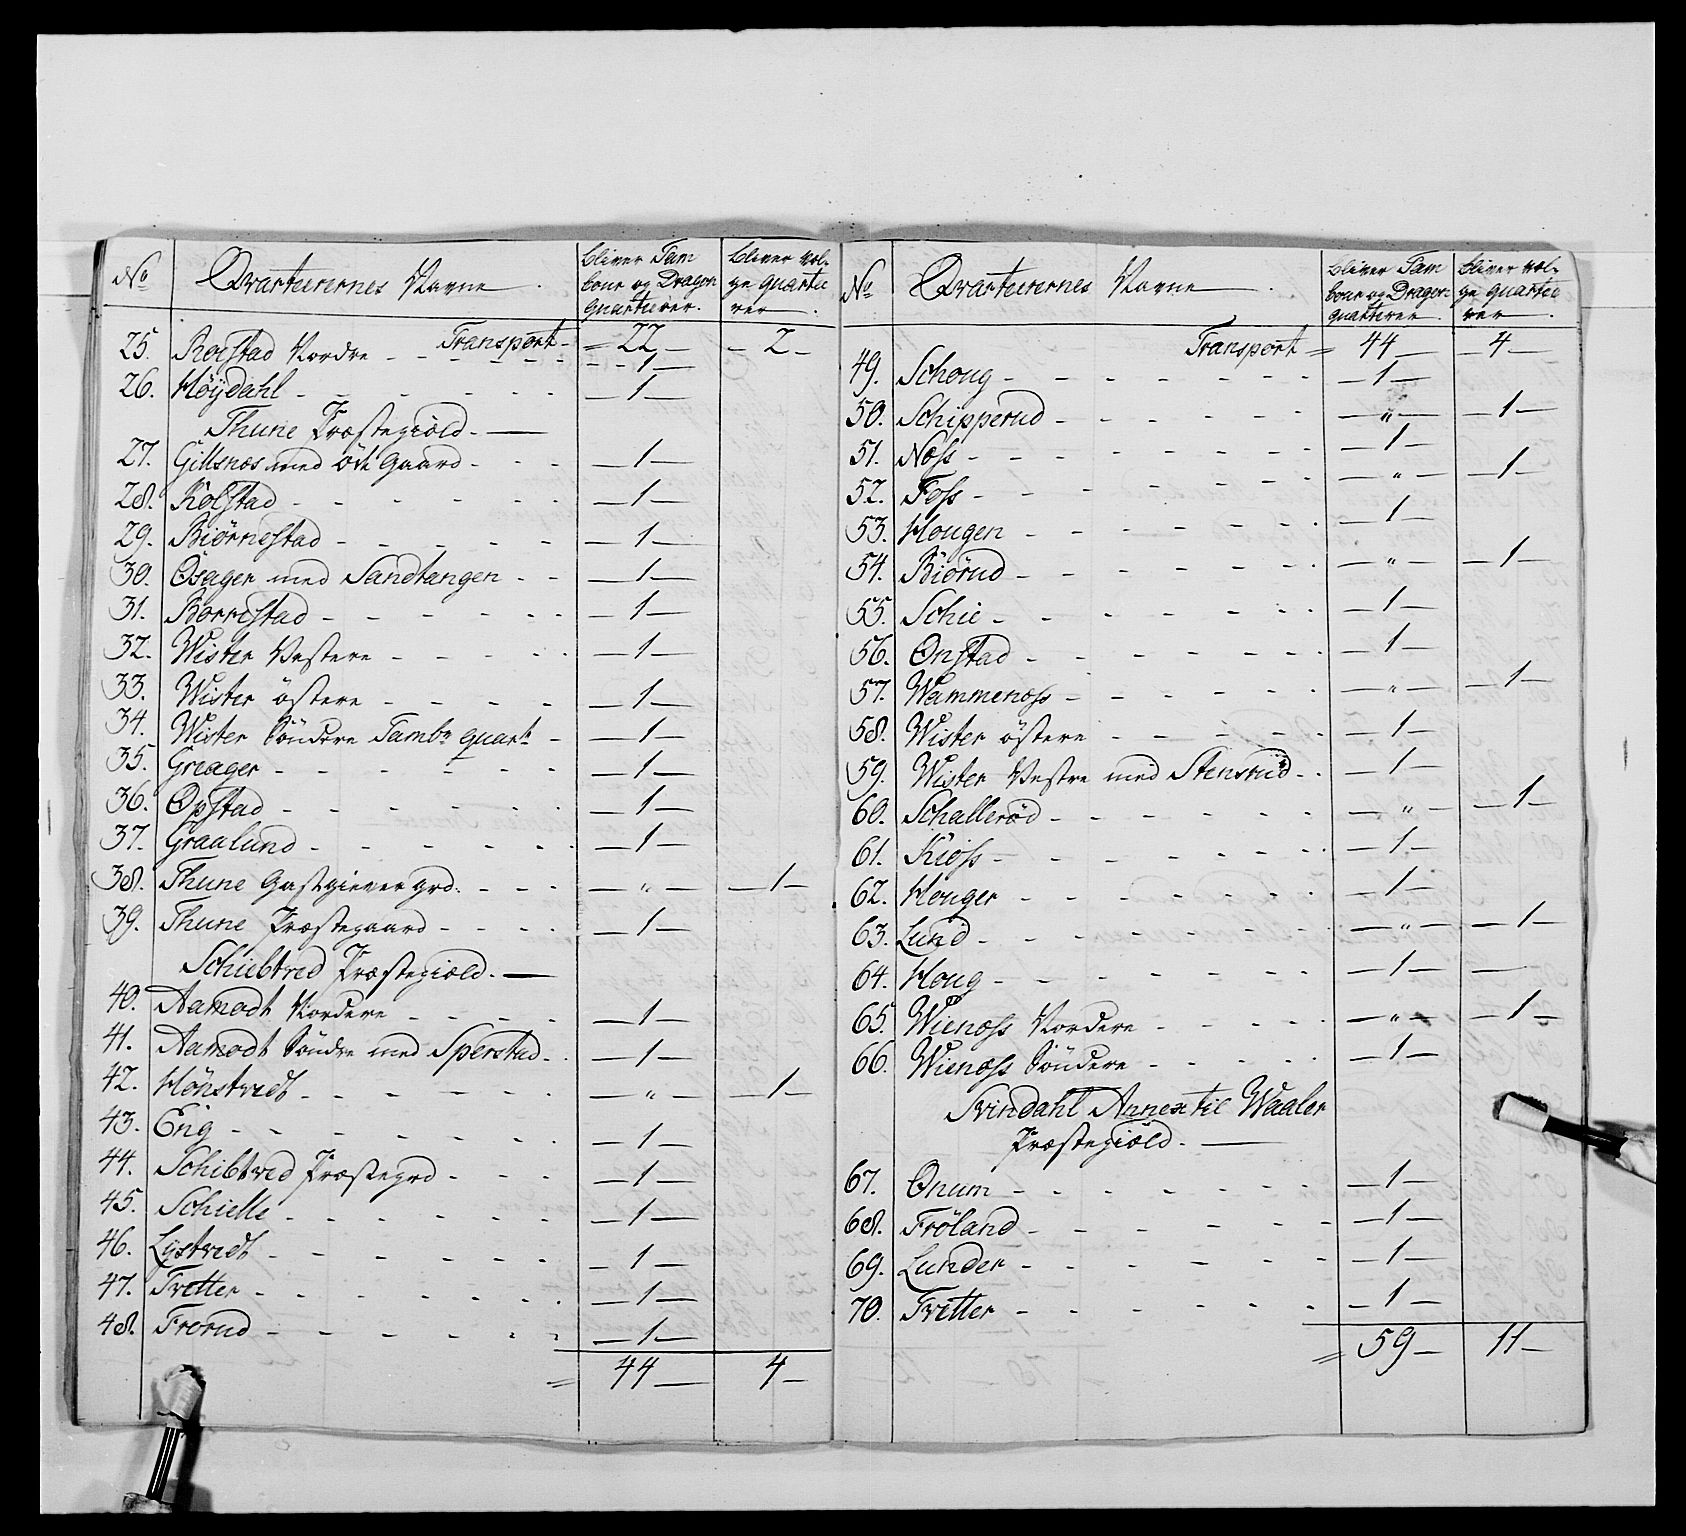 No Qvarteerernes Navne. bliver Tam bour og Dragon quarteerer. bliver Væl- ge quartie rer.
Transport = 22 — 2 —
25. Rolstad Nordre - - — 1 —
26. Höydahl - - — 1 —
Thune Præstegiöld. —
27. Gillsnæs med öde Gaard - - — 1 —
28. Kolstad - - — 1 —
29. Biörnestad - - — 1 —
30. Øsager med Sandtangen - - — 1 —
31. Borrestad - - — 1 —
32. Wister Vestere - - — 1 —
33. Wister östere - - — 1 —
34. Wister Söndere Tambr quartr - — 1 —
35. Greager - - — 1 —
36. Opstad - - — 1 —
37. Graalund - - — 1 —
38. Thune Gastgiever grd. - - — " — — 1 —
39. Thune Præstegaard - - — 1 —
Schiebtved Præstegiæld. —
40. Aamodt Nordere - - — 1 —
41. Aamodt Söndre med Sperstad - - — 1 —
42. Hönstvedt - - — " — — 1 —
43. Eng - - — 1 —
44. Schibtved Præstegrd - - — 1 —
45. Schielle - - — 1 —
46. Lystvedt - - — 1 —
47. Tvetter - - — 1 —
48. Frorud - - — 1 —
= 44 — 4 —
No Qvarteerernes Navne. bliver Tam bour og Dragon: quarterer. bliver Væl- ge quartie rer.
Transport = 44 — 4 —
49. Schoug - - — 1 —
50. Schipperud - - — " — — 1 —
51. Næss - - — 1 —
52. Foss - - — " — — 1 —
53. Hougen - - — 1 —
54. Biörud - - — " — — 1 —
55. Schie - - — 1 —
56. Onstad - - — 1 —
57. Wammenæss - - — " — — 1 —
58. Wister östere - - — 1 —
59. Wister Vestre med Stensrud - - — 1 —
60. Schalleröd - - — " — — 1 —
61. Kioss - - — 1 —
62. Houger - - — 1 —
63. Lund - - — " — — 1 —
64. Houg - - — 1 — —
65. Wienæss Nordere - - — " — — 1 —
66. Wienæss Söndere - - — 1 —
Svindahl Annex til Waaler
Præstegiæld. —
67. Onum - - — 1 —
68. Fröland - - — 1 —
69. Lunder - - — 1 —
70. Tvetter - - — 1 —
= 59 — 11 —